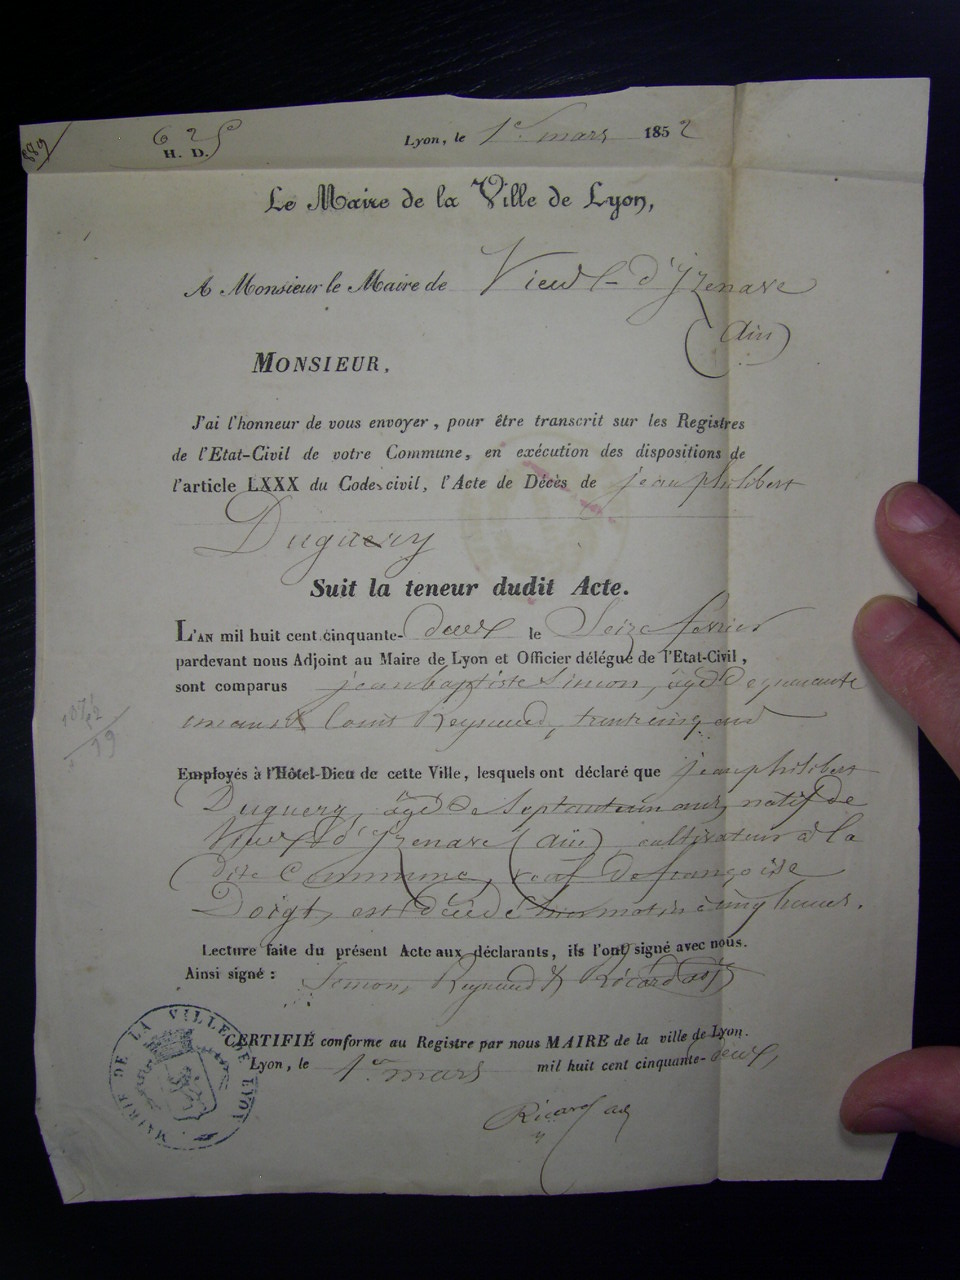 889
625
H. D.
Lyon, le 1er mars 1852
Le Maire de la Ville de Lyon,
A Monsieur le Maire de Vieux-d'Izenave
(Ain)
MONSIEUR,
J'ai l'honneur de vous envoyer, pour être transcrit sur les Registres
de l'Etat-Civil de votre Commune, en exécution des dispositions de
l'article LXXX du Code civil, l'Acte de Décès de jean philibert
Duguery
Suit la teneur dudit Acte.
L'AN mil huit cent cinquante-deux le Seize février
pardevant nous Adjoint au Maire de Lyon et Officier délégué de l'Etat-Civil,
sont comparus jean baptiste Simon, âgé de quarante
un ans & Louis Reynaud, trente cinq ans
Employés à l'Hôtel-Dieu de cette Ville, lesquels ont déclaré que jean philibert
Duguery, âgé de Septante un ans, natif de
Vieux d'Izenave (Ain), cultivateur à la
dite Commune, veuf de françoise
Doigt, est décédé hier matin à cinq heures.
Lecture faite du présent Acte aux déclarants, ils l'ont signé avec nous.
Ainsi signé : Simon, Reynaud & Ricard adj
CERTIFIÉ conforme au Registre par nous MAIRE de la ville de Lyon.
Lyon, le 1er mars mil huit cent cinquante-deux,
Ricard adj
MAIRIE DE LA VILLE DE LYON